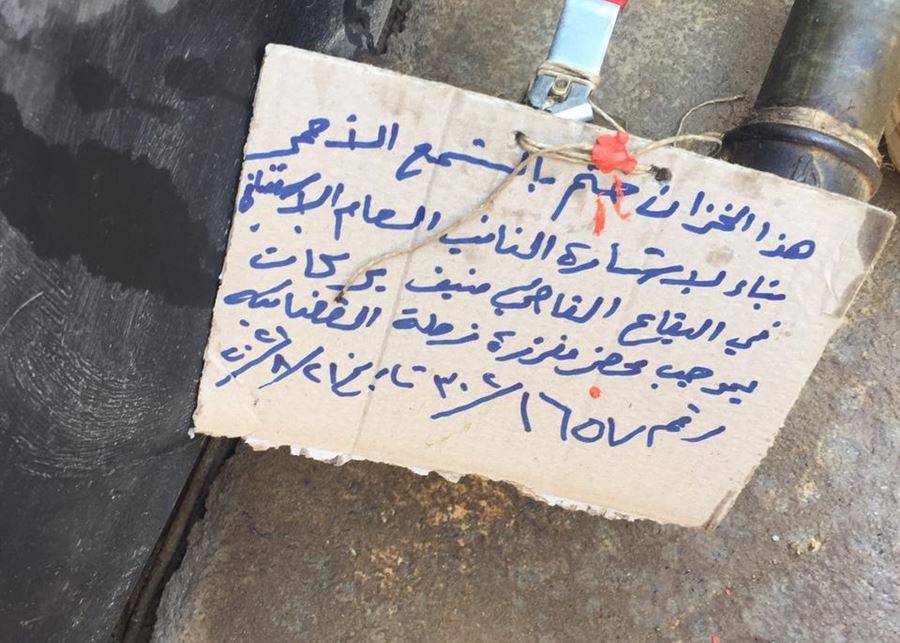 هذا الخزان ختم بالشمع الأحمر
بناء لاستشارة النائب العام الاستئنافي
في البقاع القاضي منيف بركات
بموجب محضر مفرزة زحلة القضائية
رقم ١٦٥٧/٣٠٢ تاريخ ٢١/٨/